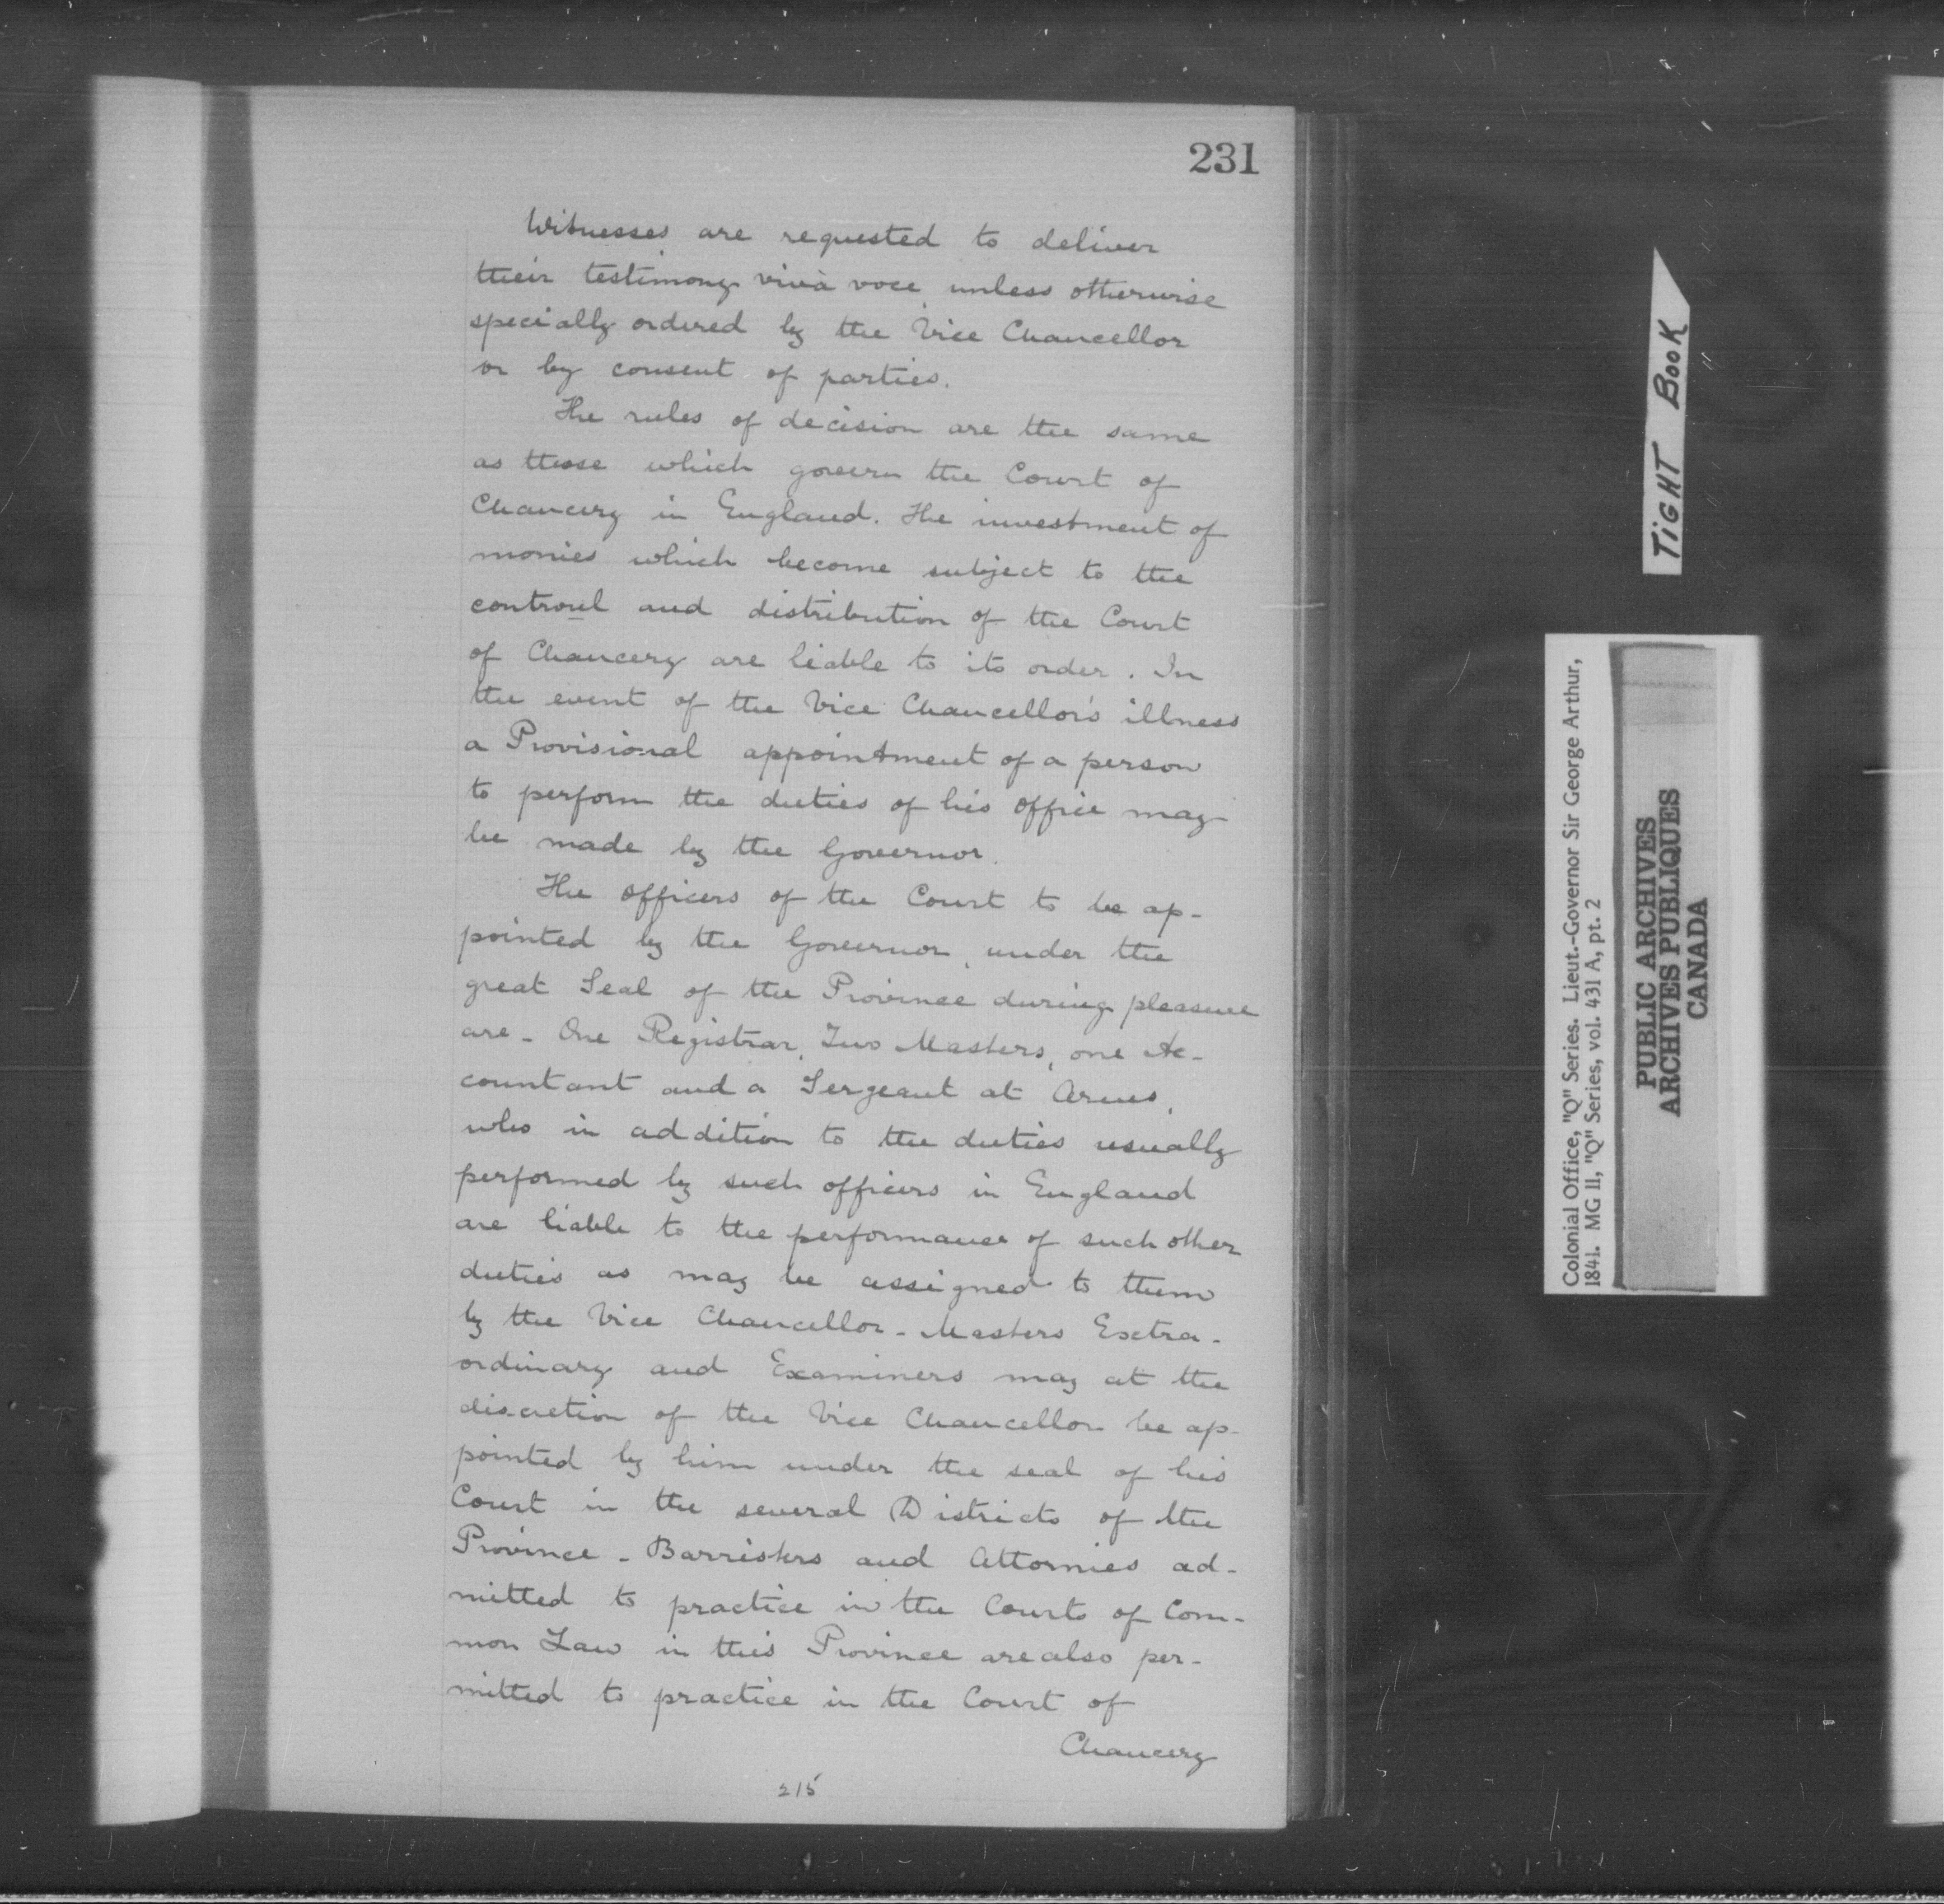 231
Witnesses are requested to deliver
their testimony vivà voce unless otherwise
specially ordered by the Vice Chancellor
or by consent of parties.
The rules of decision are the same
as those which govern the Court of
Chancery in England. The investment of
monies which become subject to the
controul and distribution of the Court
of Chancery are liable to its order. In
the event of the Vice Chancellor's illness
a Provisional appointment of a person
to perform the duties of his office may
be made by the Governor.
The officers of the Court to be ap-
pointed by the Governor, under the
great Seal of the Province during pleasure
are - One Registrar, Two Masters, one Ac-
countant and a Sergeant at Arms,
who in addition to the duties usually
performed by such officers in England
are liable to the performance of such other
duties as may be assigned to them
by the Vice Chancellor - Masters Extra-
ordinary and Examiners may at the
discretion of the Vice Chancellor be ap-
pointed by him under the seal of his
Court in the several Districts of the
Province - Barristers and Attornies ad-
mitted to practice in the Courts of Com-
mon Law in this Province are also per-
mitted to practice in the Court of
Chancery
215
TIGHT BOOK
Colonial Office, "Q" Series. Lieut.-Governor Sir George Arthur,
1841. MG 11, "Q" Series, vol. 431 A, pt. 2
PUBLIC ARCHIVES
ARCHIVES PUBLIQUES
CANADA